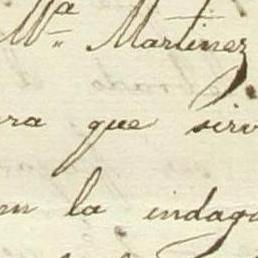 Mª Martinez
ara que serv
en la indaga